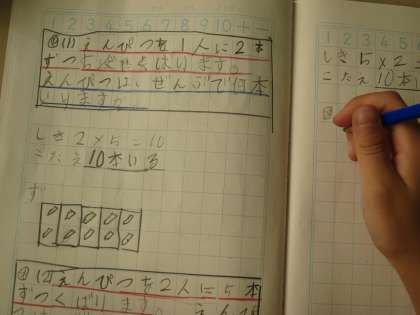 1 2 3 4 5 6 7 8 9 10 + −
(1) えんぴつを1人に2本
ずつ くばります。
えんぴつは、ぜんぶで何本
いりますか。
しき 2×5=10
こたえ 10本いる
ず
(2) えんぴつを2人に5本
ずつくばります。 えん
1 2 3 4 5
しき 5×2
こたえ 10本